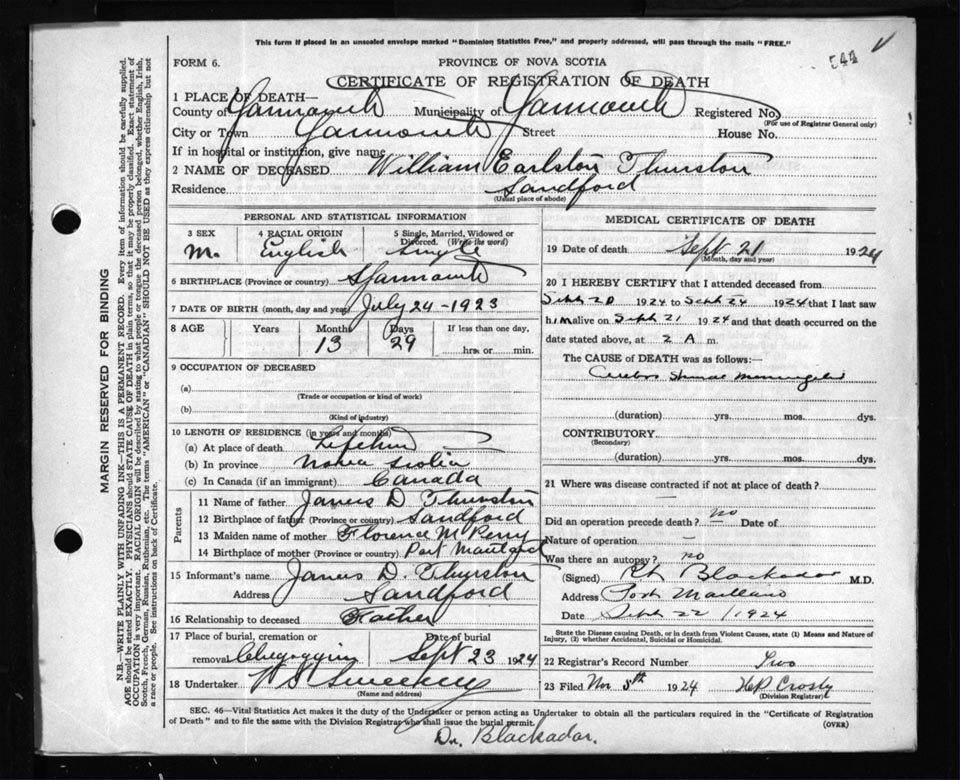 This form if placed in an unsealed envelope marked "Dominion Statistics Free," and properly addressed, will pass through the mails "FREE."
FORM 6.
PROVINCE OF NOVA SCOTIA
542
CERTIFICATE OF REGISTRATION OF DEATH
1 PLACE OF DEATH—
County of Yarmouth Municipality of Yarmouth Registered No.
(For use of Registrar General only)
City or Town Yarmouth Street House No.
If in hospital or institution, give name
2 NAME OF DECEASED William Earlston Thurston
Residence Sandford
(Usual place of abode)
PERSONAL AND STATISTICAL INFORMATION
3 SEX 4 RACIAL ORIGIN 5 Single, Married, Widowed or Divorced. (Write the word)
M. English Single
6 BIRTHPLACE (Province or country) Yarmouth
7 DATE OF BIRTH (month, day and year) July 24-1923
8 AGE Years Months Days If less than one day,
13 29 hrs or min.
9 OCCUPATION OF DECEASED
(a)
(Trade or occupation or kind of work)
(b)
(Kind of industry)
10 LENGTH OF RESIDENCE (in years and months)
(a) At place of death Lifetime
(b) In province Nova Scotia
(c) In Canada (if an immigrant) Canada
Parents
11 Name of father James D Thurston
12 Birthplace of father (Province or country) Sandford
13 Maiden name of mother Florence M Perry
14 Birthplace of mother (Province or country) Port Maitland
15 Informant's name James D. Thurston
Address Sandford
16 Relationship to deceased Father
17 Place of burial, cremation or removal Date of burial
Chegoggin Sept 23 1924
18 Undertaker Sweeney
(Name and address)
MEDICAL CERTIFICATE OF DEATH
19 Date of death Sept 21 1924
(Month, day and year)
20 I HEREBY CERTIFY that I attended deceased from
Sept 20 1924 to Sept 24 1924 that I last saw
him alive on Sept 21 1924 and that death occurred on the
date stated above, at 2 A m.
The CAUSE of DEATH was as follows:—
Cerebro Spinal Meningitis
(duration) yrs. mos. dys.
CONTRIBUTORY
(Secondary)
(duration) yrs. mos. dys.
21 Where was disease contracted if not at place of death?
—
Did an operation precede death? no Date of
Nature of operation —
Was there an autopsy? no
(Signed) Blackadar M.D.
Address Port Maitland
Date Sept 22 1924
State the Disease causing Death, or in death from Violent Causes, state (1) Means and Nature of Injury, (2) whether Accidental, Suicidal or Homicidal.
22 Registrar's Record Number Two
23 Filed Nov 8th 1924 Crosby
(Division Registrar)
SEC. 46—Vital Statistics Act makes it the duty of the Undertaker or person acting as Undertaker to obtain all the particulars required in the "Certificate of Registration
of Death" and to file the same with the Division Registrar who shall issue the burial permit.
(OVER)
Dr. Blackadar.
MARGIN RESERVED FOR BINDING
N.B.—WRITE PLAINLY WITH UNFADING INK—THIS IS A PERMANENT RECORD. Every item of information should be carefully supplied.
AGE should be stated EXACTLY. PHYSICIANS should STATE CAUSE OF DEATH in plain terms, so that it may be properly classified. Exact statement of
OCCUPATION is very important. RACIAL ORIGIN will be described by stating to what people or tongue the deceased person belonged, whether English, Irish,
Scotch, French, German, Russian, Ruthenian, etc. The terms "AMERICAN" or "CANADIAN" SHOULD NOT BE USED as they express citizenship but not
a race or people. See instructions on back of Certificate.